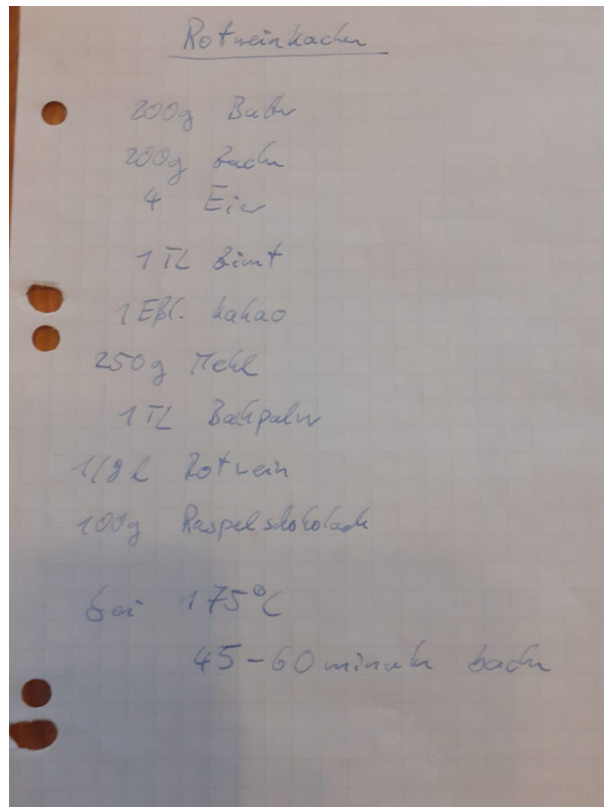 Rotweinkuchen
200g Butter
200g Zucker
4 Eier
1 TL Zimt
1 Eßl. Kakao
250g Mehl
1 TL Backpulver
1/8 l Rotwein
100g Raspelschokolade
bei 175°C
45-60 minuten backen